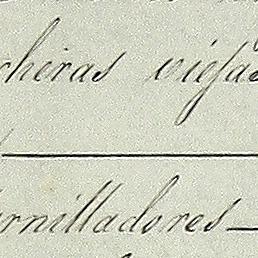 cheras viejas
rnilladores